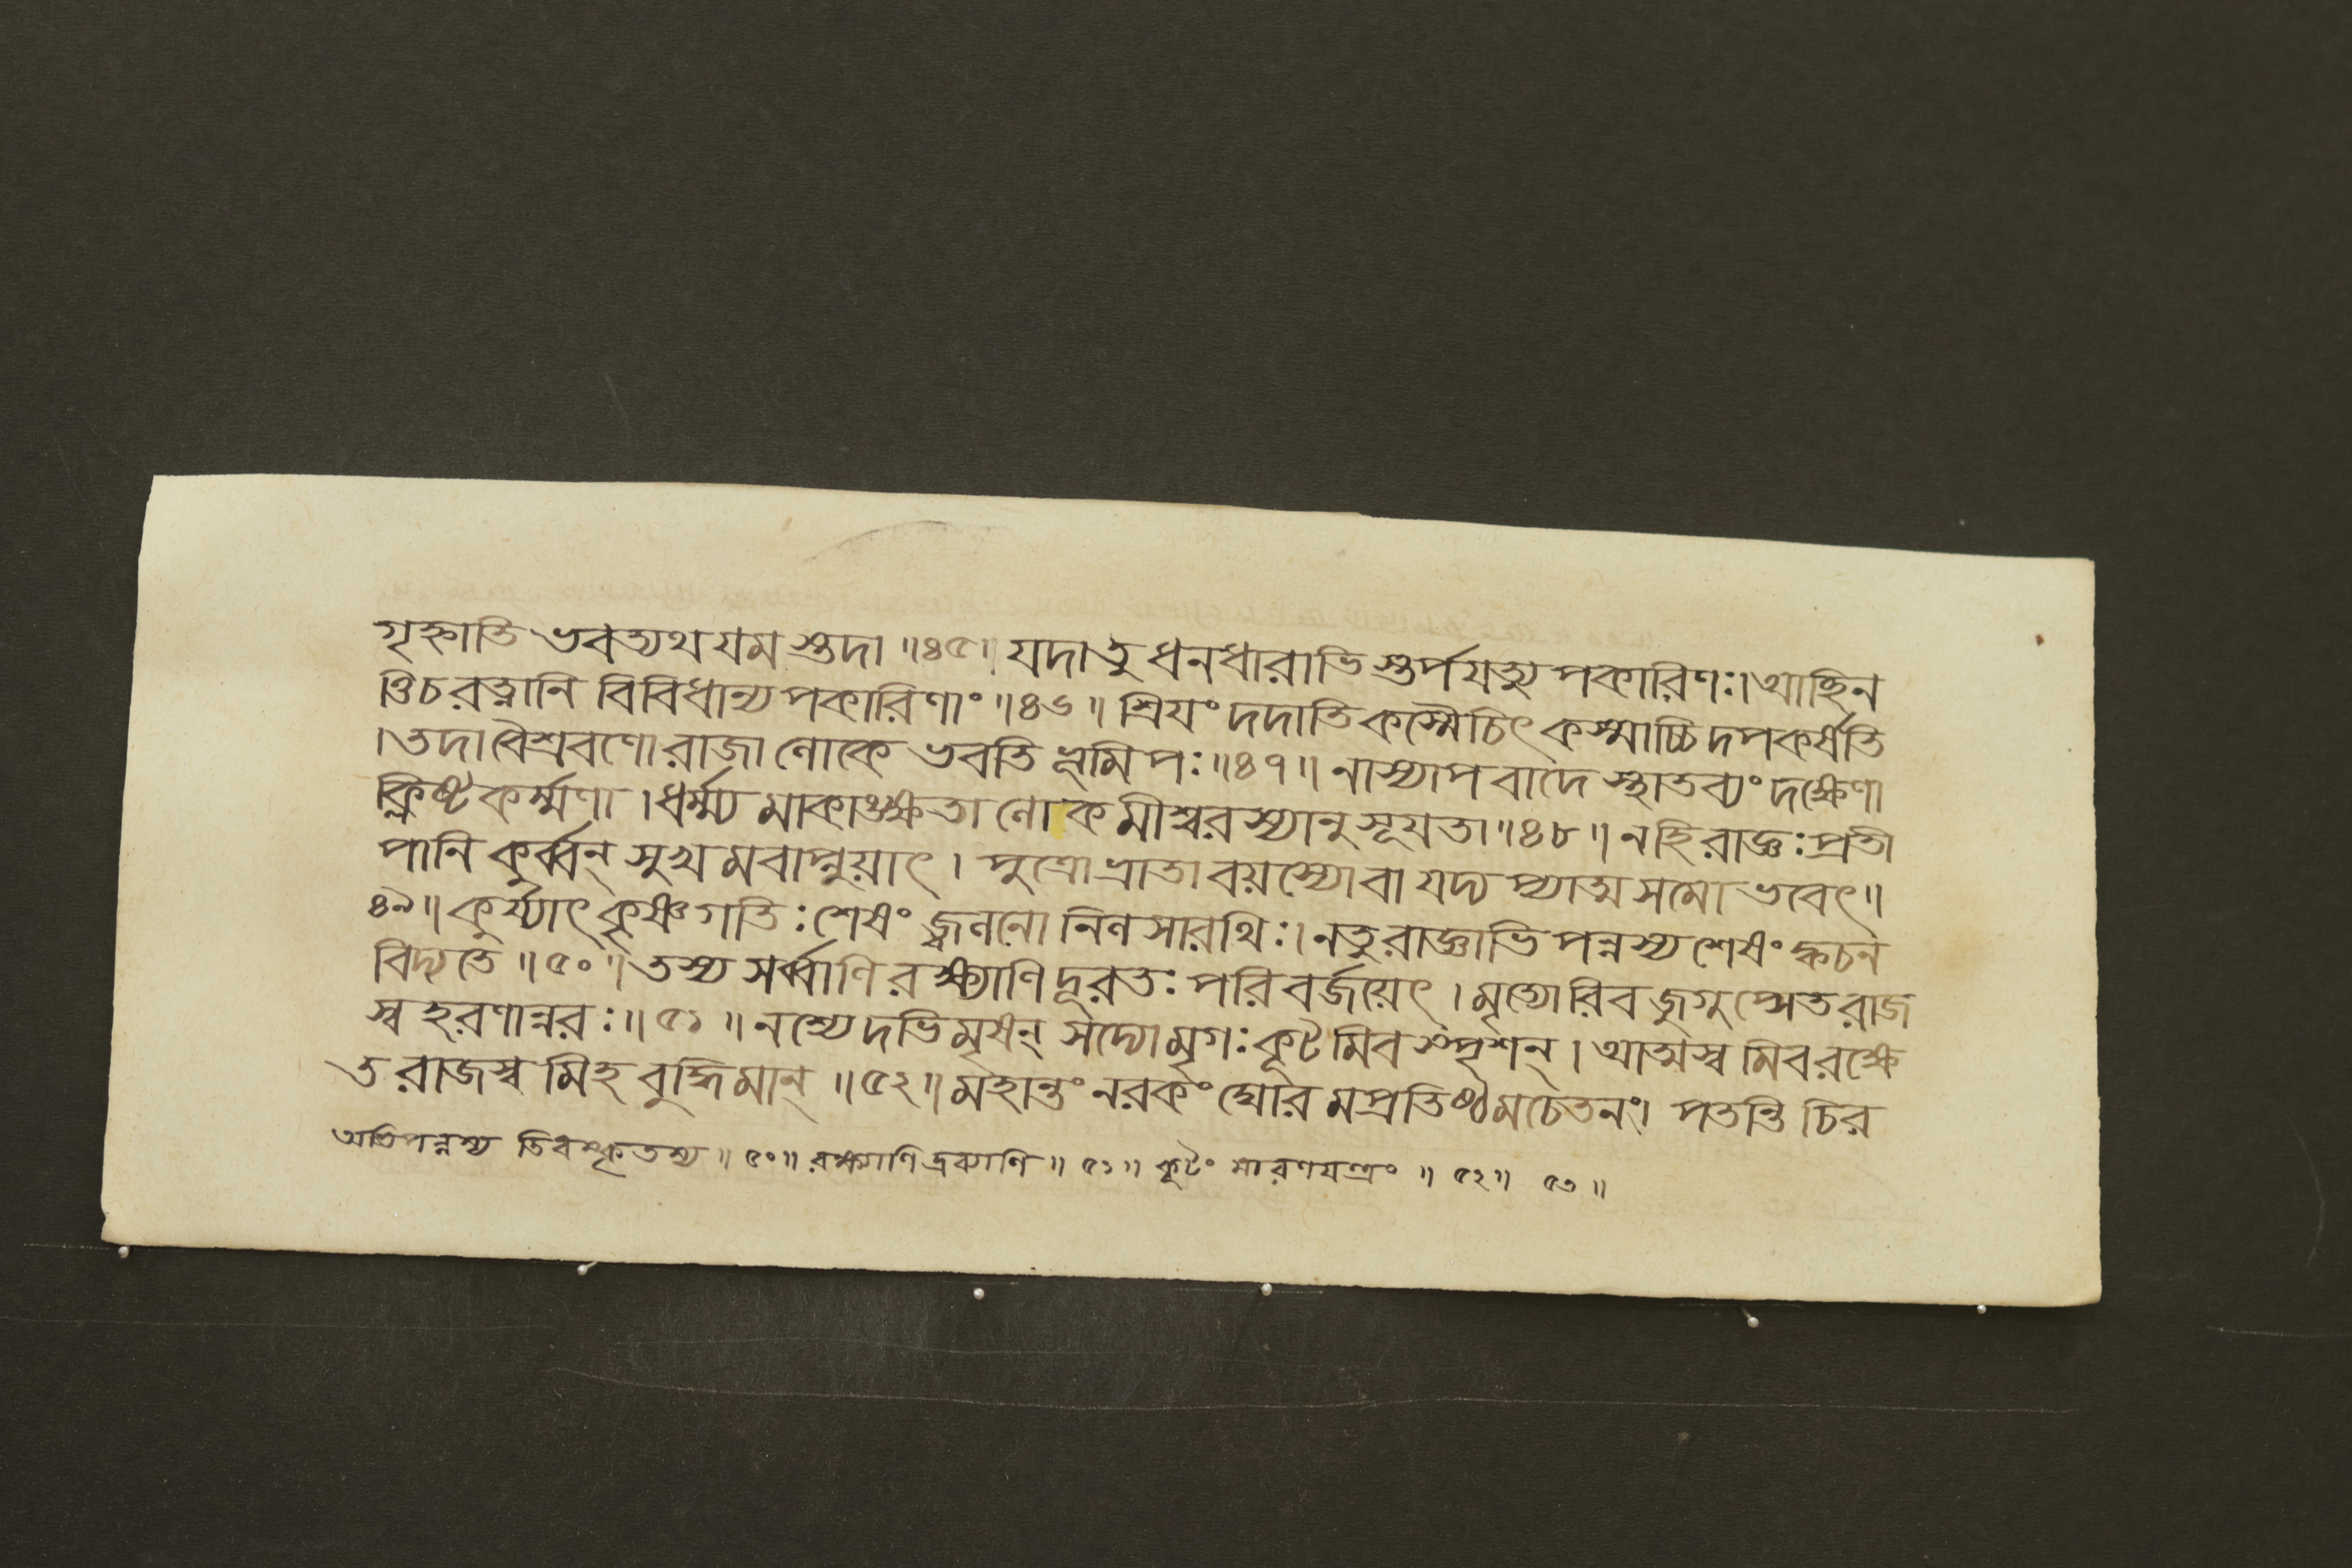 গৃহ্নাতি ভবত্যথ যমস্তদা ॥৪৫॥ যদাতু ধনধারাভিস্তর্পযত্যুপকারিণঃ। আচ্ছিন
ত্তিচরত্নানি বিবিধান্যপকারিণাং ॥৪৬॥ শ্রিযং দদাতি কস্মৈচিৎ কস্মাচ্চিদপকর্ষতি
। তদা বৈশ্রবণো রাজা লোকে ভবতি ভূমিপঃ ॥৪৭॥ নাস্যাপবাদে স্থাতব্যং দক্ষেণা
ক্লিষ্টকর্ম্মণা । ধর্ম্ম্যমাকাঙক্ষতা লোকমীশ্বরস্যানুসূযতা ॥৪৮॥ নহি রাজ্ঞঃ প্রতী
পানি কুর্ব্বন্ সুখমবাপ্নুয়াৎ । পুত্রো ভ্রাতা বয়স্যোবা যদ্যপ্যাত্মসমো ভবেৎ ॥
৪৯॥ কুর্য্যাৎ কৃষ্ণগতিঃ শেষং জ্বলনো নিলসারথিঃ। নতু রাজ্ঞাভিপন্নস্য শেষং ক্বচন
বিদ্যতে ॥৫০॥ তস্য সর্ব্বাণি রক্ষ্যাণি দূরতঃ পরিবর্জয়েৎ । মৃত্যোরিব জুগুপ্সেত রাজ
স্বহরণান্নরঃ ॥৫১॥ নশ্যেদভিমৃষন্ সদ্যো মৃগঃ কূটমিব স্পৃশন্ । আত্মস্বমিব রক্ষে
ত রাজস্বমিহ বুদ্ধিমান্ ॥৫২॥ মহান্তং নরকং ঘোরমপ্রতিষ্ঠমচেতনং। পতন্তি চির
অভিপন্নস্য তিরস্কৃতস্য ॥ ৫০॥ রক্ষ্যাণি দ্রব্যাণি ॥ ৫১॥ কূটং মারণযন্ত্রং ॥ ৫২॥ ৫৩ ॥